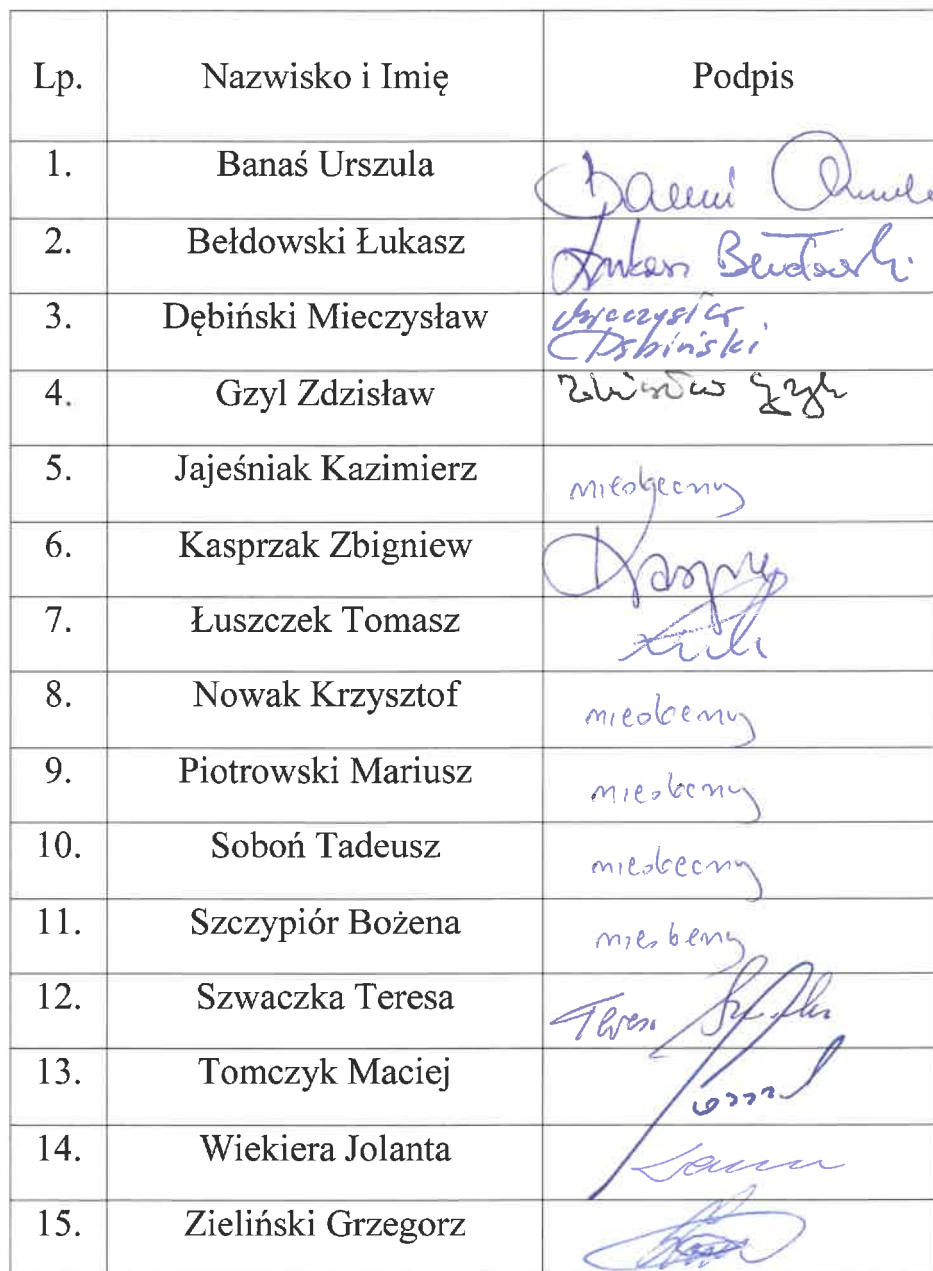 Lp. Nazwisko i Imię Podpis
1. Banaś Urszula
2. Bełdowski Łukasz
3. Dębiński Mieczysław Mieczysław
Dębiński
4. Gzyl Zdzisław
5. Jajeśniak Kazimierz nieobecny
6. Kasprzak Zbigniew
7. Łuszczek Tomasz
8. Nowak Krzysztof nieobecny
9. Piotrowski Mariusz nieobecny
10. Soboń Tadeusz nieobecny
11. Szczypiór Bożena
12. Szwaczka Teresa Teresa
13. Tomczyk Maciej
14. Wiekiera Jolanta
15. Zieliński Grzegorz